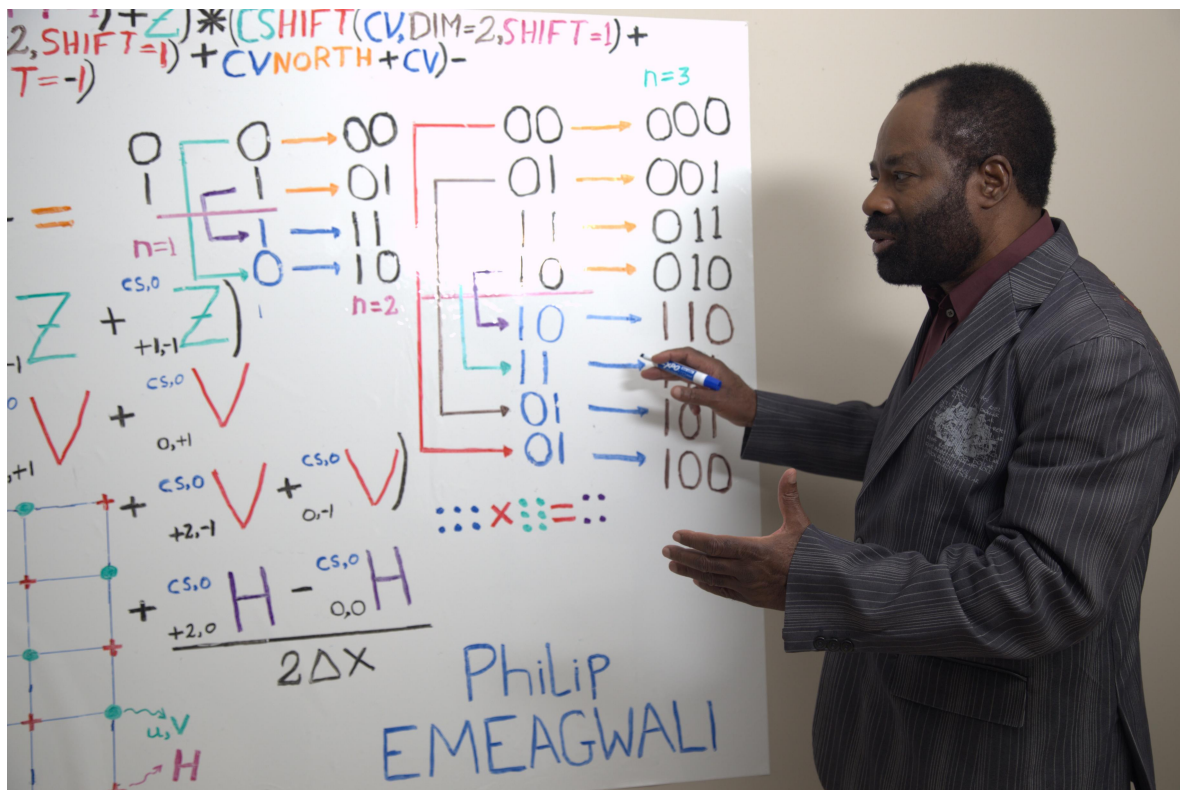 +Z)*(CSHIFT(CV,DIM=2,SHIFT=1)+
2,SHIFT=1)+CVNORTH+CV)-
T=-1)
n=3
0 0 → 00 00 → 000
1 1 → 01 01 → 001
= 1 → 11 11 → 011
n=1 0 → 10 10 → 010
n=2 10 → 110
11 →
01 → 101
01 → 100
-1 Z + cs,0 +1,-1 Z)
0 ,+1 V + cs,0 0,+1 V
+ cs,0 +2,-1 V + cs,0 0,-1 V)
× =
+ cs,0 +2,0 H - cs,0 0,0 H
2ΔX
u,V
H
Philip
EMEAGWALI